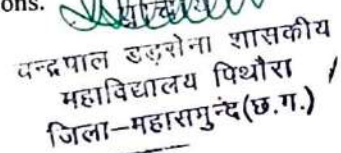 ons.
चन्द्रपाल डड़सेना शासकीय
महाविद्यालय पिथौरा
जिला–महासमुन्द(छ.ग.)